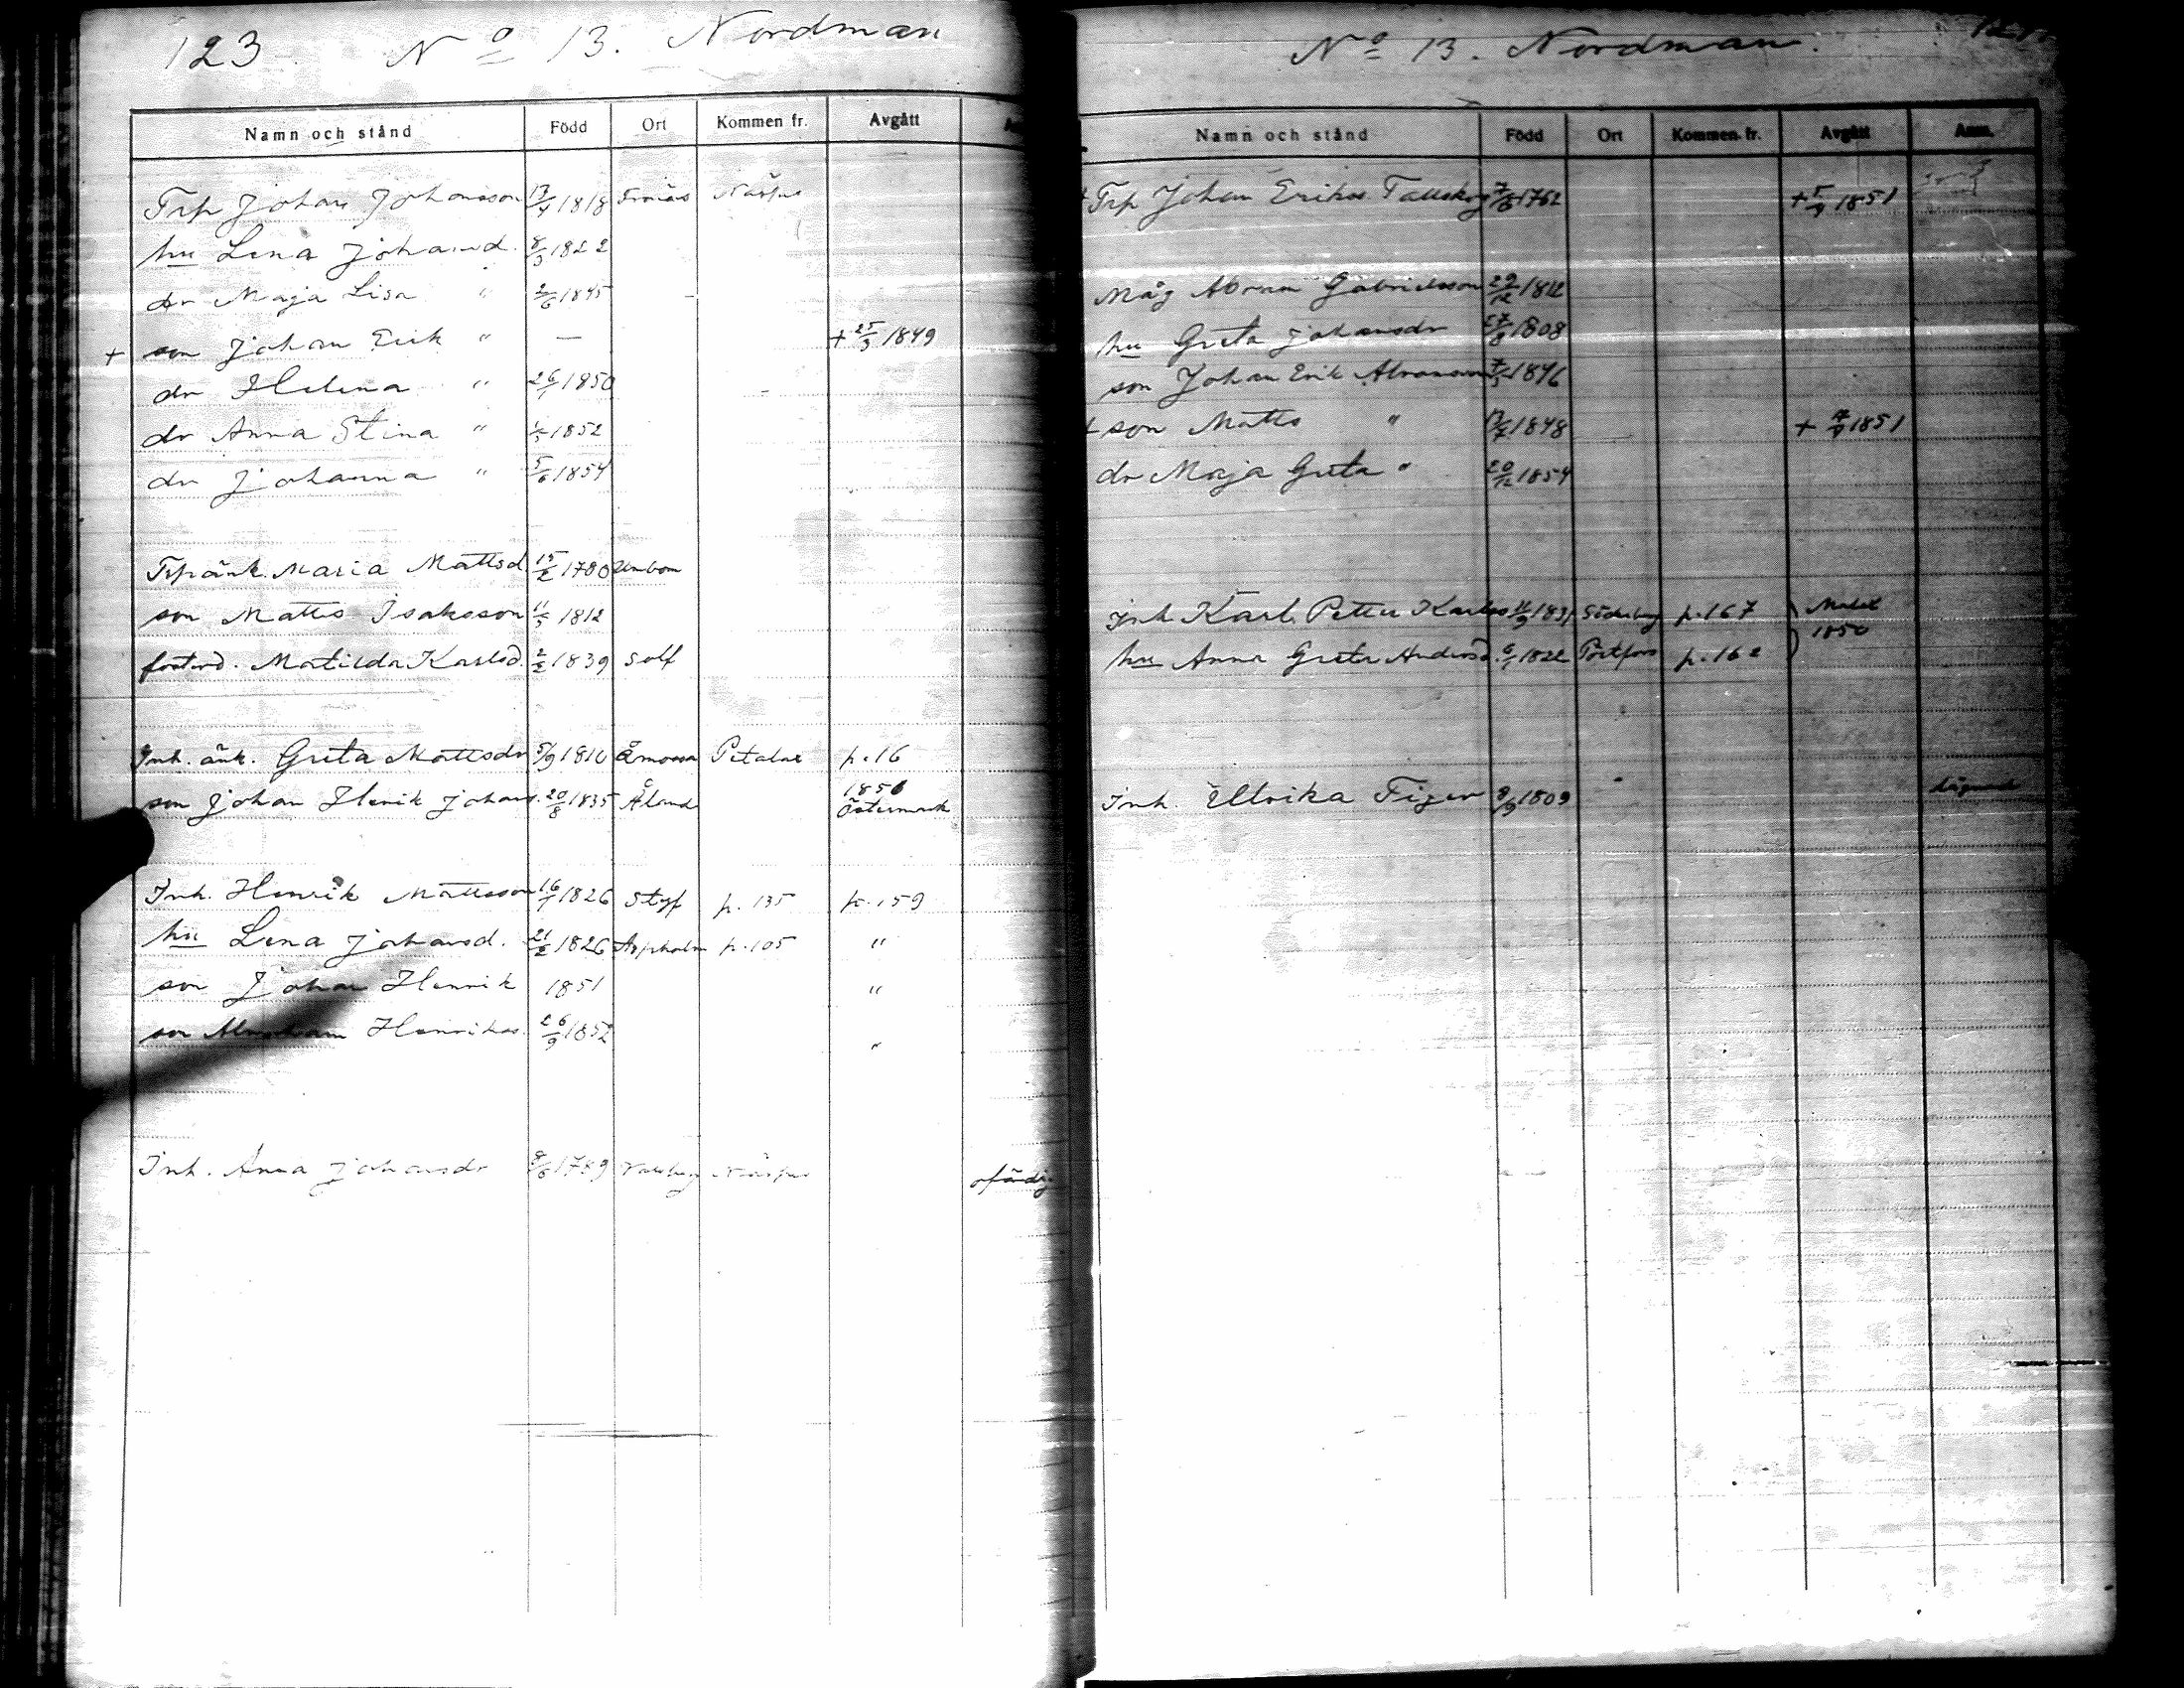 123. No 13. Nordman
Namn och stånd Född Ort Kommen fr. Avgått
Trp Johan Johansson 13/4 1818 Frönäs Närpes
hu Lena Johansd. 8/3 1822
dr Maja Lisa " 2/6 1845
+ son Johan Erik " — + 25/3 1849
dr Helena " 26/1 1850
dr Anna Stina " 1852
dr Johanna " 5/6 1854
Trpänk. Maria Mattsd 15/2 1780
son Matts Isaksson 11/3 1812
fosterd. Matilda Karlsd. 2/2 1839 Solf
Inh. änk. Greta Mattsdr 5/9 1810 Åmossa Petalax p. 16
son Johan Henrik Johans. 20/8 1835 Åland 1850 Östermark
Inh. Henrik Mattsson 16/7 1826 Styf p. 135 p. 159
hu Lena Johansd. 21/2 1826 Aspholm p. 105 "
son Johan Henrik 1851 "
son Abraham Henriks. 26/9 1852 "
Inh. Anna Johansdr 8/6 1789 Närpes ofärdig
No 13. Nordman.
Namn och stånd Född Ort Kommen fr. Avgått Anm.
Trp Johan Eriks Tallskog 1762 + 5/9 1851
Måg Abram Gabrielsson 29/12 1812
hu Greta Johansdr 1808
son Johan Erik Abramsson 1846
+ son Matts " 1848 + 1851
dr Maja Greta " 20/12 1854
Inh Karl Petter Karlss 1831 Söderberg p. 167 Malax
hu Anna Greta Andersd. 6/1 1822 Pörtfors p. 162 1850
Inh. Ullrika Tiger 8/9 1809